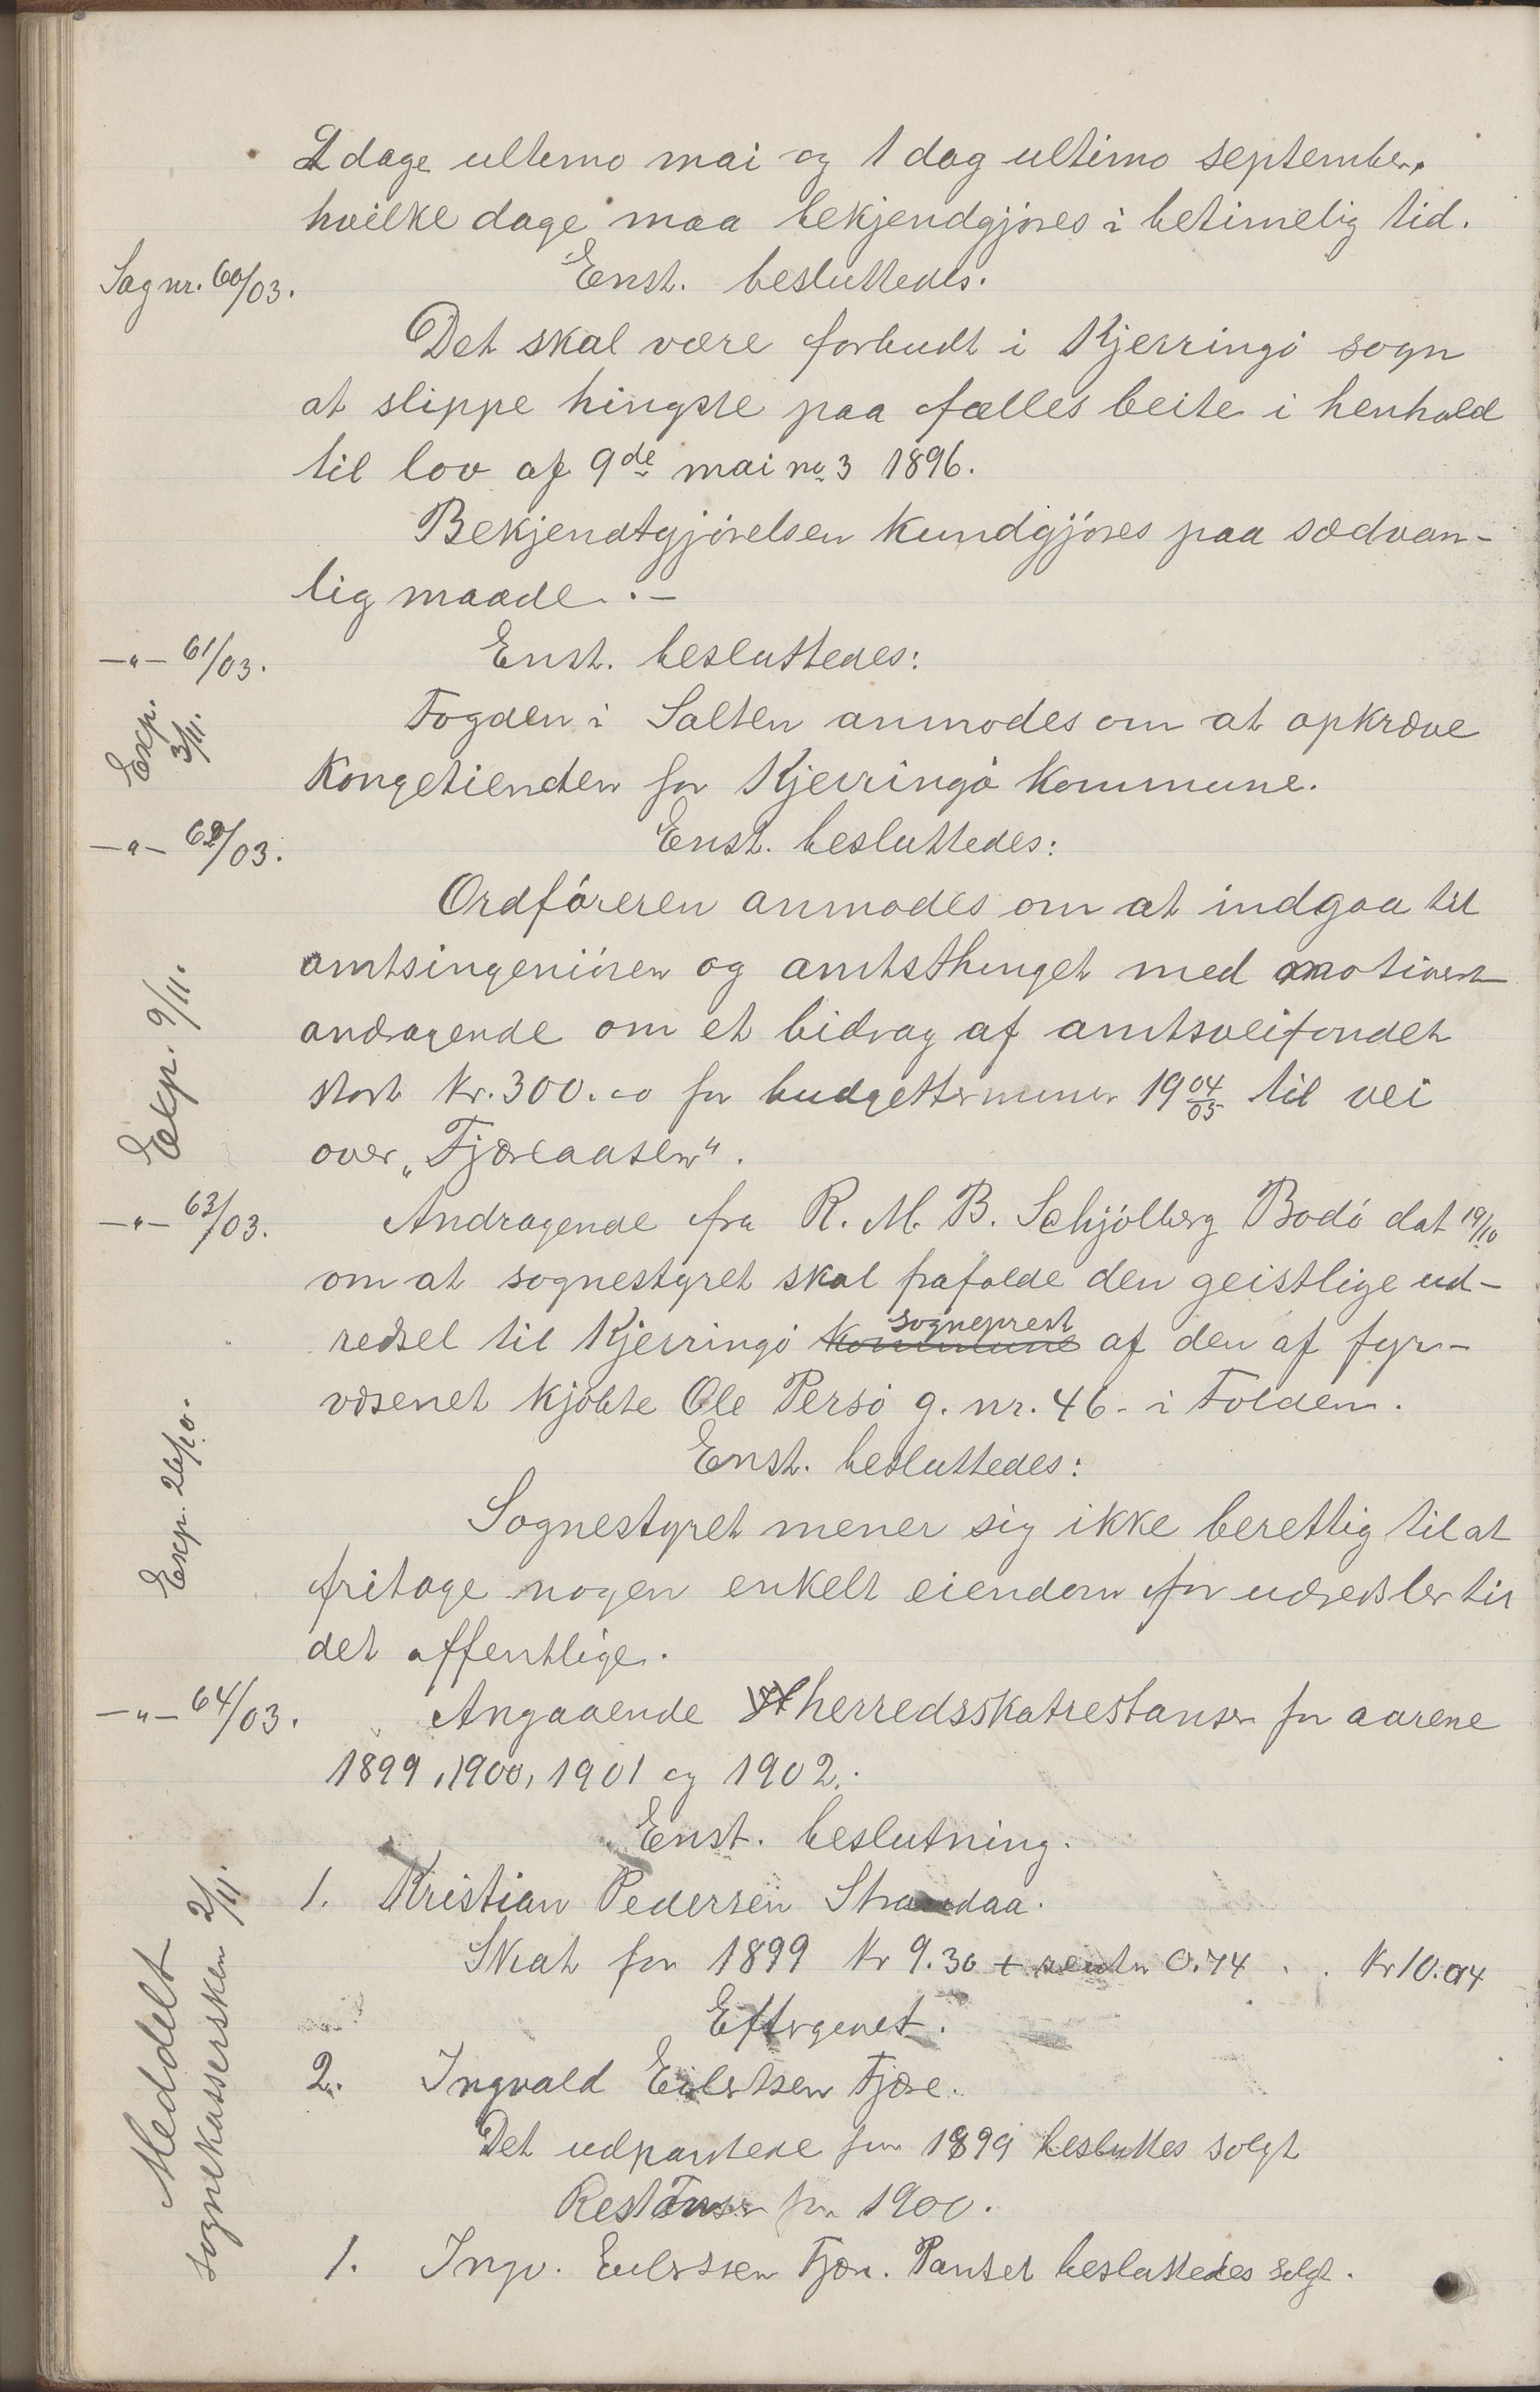 2 dage ultimo mai og 1 dag ultimo september,
hvilke dage maa bekjendgjøres i betimelig tid.
Sag nr. 60/03.
Enst. besluttedes.
Det skal være forbudt i Kjerringö sogn
at slippe hingste paa fælles beite i henhold
til lov af 9de mai no 3 1896.
Bekjendtgjörelsen kundgjöres paa sædvan-
lig maade.-
-"- 61/03.
Enst. besluttedes:
Exp. 3/11.
Fogden i Salten anmodes om at opkræve
Kongetienden for Kjerringö kommune.
-"- 62/03.
Enst. besluttedes:
Ordföreren anmodes om at indgaa til
amtsingeniören og amtsthinget med motivert
andragende om et bidrag af amtsveifondet
stort kr. 300.00 for budgetterminen 1904/05 til vei
over „Fjæreaasen".
Exp. 9/11.
-"- 63/03.
Andragende fra R. M. B. Schjölberg Bodö dat 19/10
om at sognestyret skal frafalde den geistlige ud-
redsel til Kjerringö kommune sogneprest af den af fyr-
væsenet kjöbte Ole Persö g. nr. 46- i Folden.
Enst. besluttedes:
Exp. 26/10.
Sognestyret mener sig ikke berettig til at
fritage nogen enkelt eiendom for udredsler til
det offentlige.
-"- 64/03.
Angaaende herredsskatrestanser for aarene
1899, 1900, 1901 og 1902.
Enst. beslutning.
Meddelt
sognekassersken 2/11.
1. Kristian Pedersen Strandaa.
Skat for 1899 Kr 9.30 + renter 0.74 . . Kr 10.04
Eftergivet.
2. Ingvald Eilertsen Fjære.
Det udpantede for 1899 besluttes solgt
Restanser for 1900.
1. Ingv. Eilertsen Fjære. Pantet besluttedes solgt.